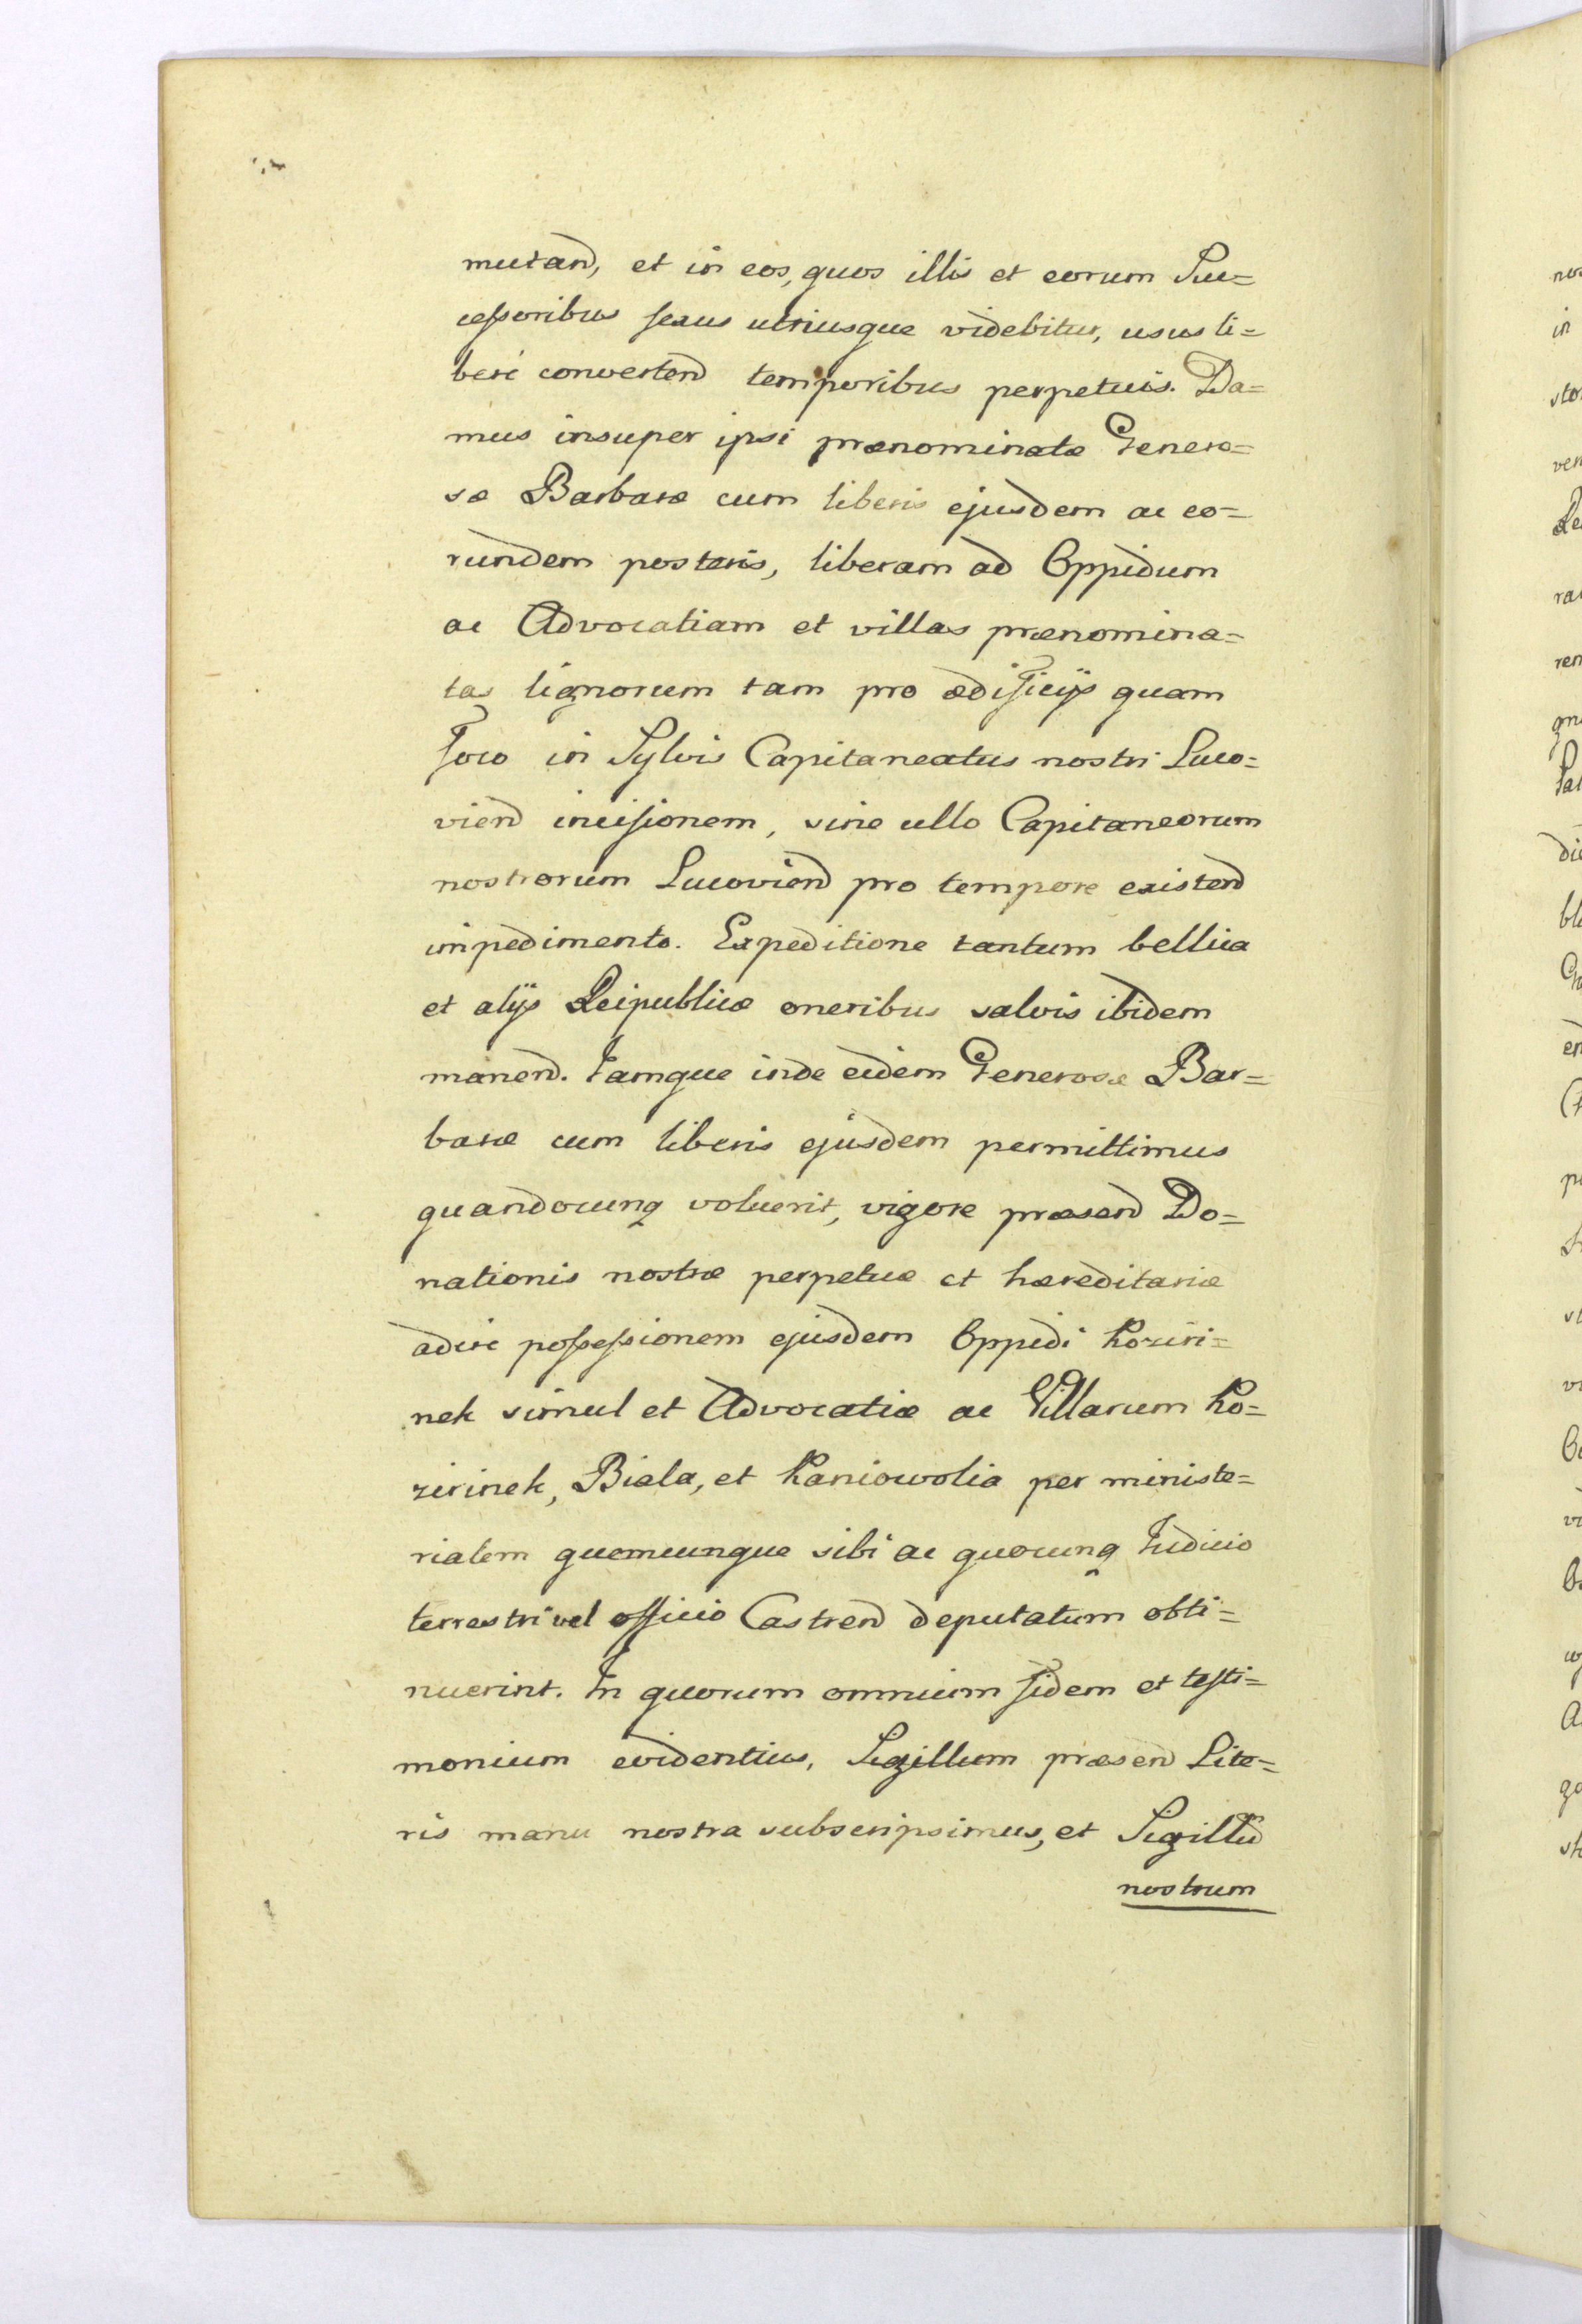 mutand, et in eos, quos illis et eorum Suc=
cessoribus sexus utriusque videbitur, usus li=
beré convertend temporibus perpetuis. Da=
mus insuper ipsi prænominatæ Genero=
sæ Barbaræ cum liberis ejusdem ac eo=
rundem posteris, liberam ad Oppidum
ac Advocatiam et villas prænomina=
tas lignorum tam pro ædificijs quam
foco in Sylvis Capitaneatus nostri Luco=
viend incisionem, sine ullo Capitaneorum
nostrorum Lucoviend pro tempore existend
impedimento. Expeditione tantum bellica
et alijs Reipublicæ oneribus salvis ibidem
manend. Jamque inde eidem Generosæ Bar=
baræ cum liberis ejusdem permittimus
quandocunq voluerit, vigore præsend Do=
nationis nostræ perpetuæ et hæreditariæ
adire possessionem ejusdem Oppidi Koziri=
nek simul et Advocatiæ ac Villarum Ko=
zirinek, Biala, et Kaniowolia per ministe=
rialem quemcunque sibi ac quocunq Judicio
terrestri vel officio Castrend deputatum obti=
nuerint. In quorum omnium fidem et testi=
monium evidentius, Sigillum præsend Lite=
ris manu nostra subscripsimus, et Sigillū
nostrum